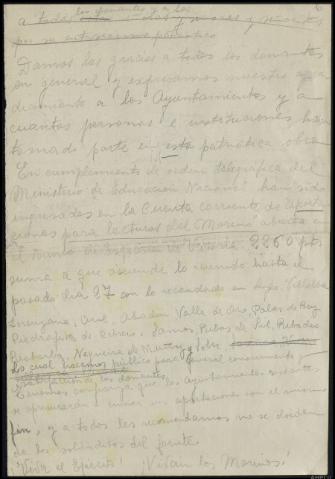 a todos los donantes y a los
por su entusiasmo patriotico
Damos las gracias a todos los donantes
en general y expresamos nuestro agra
decimiento a los Ayuntamientos y a
cuantas personas e instituciones han
tomado parte en esta patriótica obra
En cumplimiento de orden telegráfica del
Ministerio de Educación Nacional han sido
ingresadas en la Cuenta corriente de aporta
ciones para lecturas del Marino abierta en
el Banco de España de Vitoria 2260 pts.
suma a que asciende lo reunido hasta el
pasado dia 27 con lo recaudado en Lugo, Villalba
Lorenzana, Abadin Valle de Oro, Palas de Rey
Piedrafita de Cebrero, Samos, Ribas de Sil, Ribadeo
Becerreá, Nogueira de Muñiz y
Lo cual hacemos público para general conocimiento y
satisfacción de los donantes.
Tenemos confianza que los ayuntamientos
se apresurarán a enviar sus aportaciones con el mismo
fin, y a todos les recomendamos no se olviden
de los solditos del frente.
¡Viva el Ejercito! ¡Vivan los Marinos!